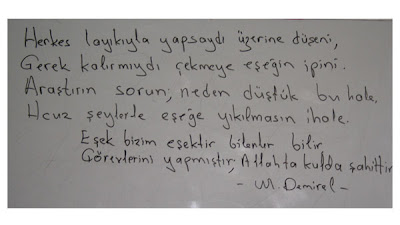 Herkes layıkıyla yapsaydı üzerine düşeni,
Gerek kalırmıydı çekmeye eşeğin ipini.
Araştırın sorun, neden düştük bu hale,
Ucuz şeylerle eşeğe yıkılmasın ihale.
Eşek bizim eşektir bilenler bilir
Görevlerini yapmıştır, Allahta kulda şahittir
- M. Demirel -